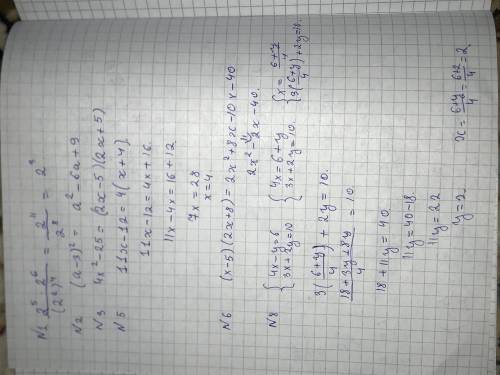 N1 2⁵·2⁶/(2²)⁴ = 2¹¹/2⁸ = 2³
N2 (a-3)² = a²-6a+9
N3 4x²-25 = (2x-5)(2x+5)
N5 11x-12=4(x+4)
11x-12=4x+16
11x-4x=16+12
7x=28
x=4
N6 (x-5)(2x+8) = 2x²+8x-10x-40
2x²-2x-40.
N8 {4x-y=6 {4x=6+y {x=(6+y)/4
{3x+2y=10 {3x+2y=10. {3((6+y)/4)+2y=10.
3((6+y)/4)+2y=10.
(18+3y+8y)/4 = 10
18+11y=40
11y=40-18.
11y=22
y=2
x=(6+y)/4=(6+2)/4=2